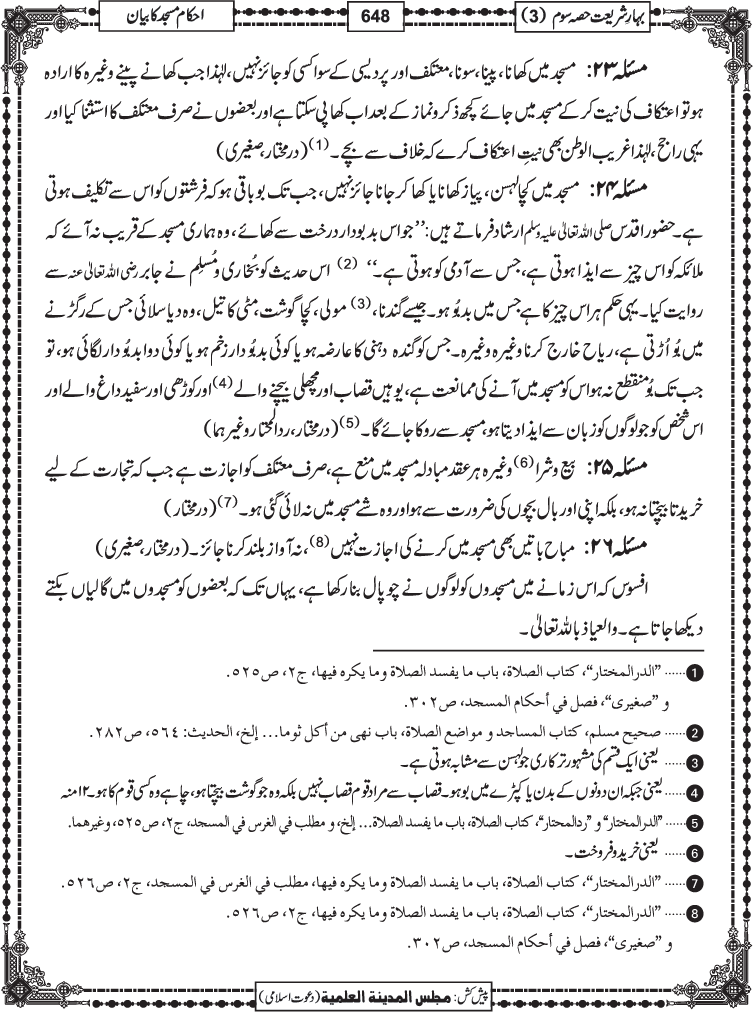 بہار شریعت حصہ سوم (3)
648
احکام مسجد کا بیان
مسئلہ ۲۳: مسجد میں کھانا، پینا، سونا، معتکف اور پردیسی کے سوا کسی کو جائز نہیں، لہٰذا جب کھانے پینے وغیرہ کا ارادہ
ہو تو اعتکاف کی نیت کر کے مسجد میں جائے کچھ ذکر و نماز کے بعد اب کھا پی سکتا ہے اور بعضوں نے صرف معتکف کا استثنا کیا اور
یہی راجح، لہٰذا غریب الوطن بھی نیتِ اعتکاف کرے کہ خلاف سے بچے۔ (1) (درمختار، صغیری)
مسئلہ ۲۴: مسجد میں کچا لہسن، پیاز کھانا یا کھا کر جانا جائز نہیں، جب تک بو باقی ہو کہ فرشتوں کو اس سے تکلیف ہوتی
ہے۔ حضور اقدس صلی اللہ تعالیٰ علیہ وسلم ارشاد فرماتے ہیں: ’’جو اس بدبودار درخت سے کھائے، وہ ہماری مسجد کے قریب نہ آئے کہ
ملائکہ کو اس چیز سے ایذا ہوتی ہے، جس سے آدمی کو ہوتی ہے۔‘‘ (2) اس حدیث کو بُخاری و مُسلِم نے جابر رضی اللہ تعالیٰ عنہ سے
روایت کیا۔ یہی حکم ہر اس چیز کا ہے جس میں بدبُو ہو۔ جیسے گندنا، (3) مولی، کچا گوشت، مٹی کا تیل، وہ دیا سلائی جس کے رگڑنے
میں بُو اُڑتی ہے، ریاح خارج کرنا وغیرہ وغیرہ۔ جس کو گندہ دہنی کا عارضہ ہو یا کوئی بدبُودار زخم ہو یا کوئی دوا بدبُودار لگائی ہو، تو
جب تک بُو منقطع نہ ہو اس کو مسجد میں آنے کی ممانعت ہے، یوہیں قصاب اور مچھلی بیچنے والے (4) اور کوڑھی اور سفید داغ والے اور
اس شخص کو جو لوگوں کو زبان سے ایذا دیتا ہو، مسجد سے روکا جائے گا۔ (5) (درمختار، ردالمحتار وغیرہما)
مسئلہ ۲۵: بیع و شرا (6) وغیرہ ہر عقد مبادلہ مسجد میں منع ہے، صرف معتکف کو اجازت ہے جب کہ تجارت کے لیے
خریدتا بیچتا نہ ہو، بلکہ اپنی اور بال بچوں کی ضرورت سے ہو اور وہ شے مسجد میں نہ لائی گئی ہو۔ (7) (درمختار)
مسئلہ ۲۶: مباح باتیں بھی مسجد میں کرنے کی اجازت نہیں (8)، نہ آواز بلند کرنا جائز۔ (درمختار، صغیری)
افسوس کہ اس زمانے میں مسجدوں کو لوگوں نے چوپال بنا رکھا ہے، یہاں تک کہ بعضوں کو مسجدوں میں گالیاں بکتے
دیکھا جاتا ہے۔ والعیاذ باللہ تعالیٰ۔
1 ...... "الدرالمختار"، کتاب الصلاة، باب ما یفسد الصلاة وما یکره فیها، ج۲، ص۵۲۵.
و "صغیری"، فصل في أحکام المسجد، ص۳۰۲.
2 ...... صحیح مسلم، کتاب المساجد و مواضع الصلاة، باب نهی من أکل ثوما... إلخ، الحدیث: ۵۶۴، ص۲۸۲.
3 ...... یعنی ایک قسم کی مشہور ترکاری جو لہسن سے مشابہ ہوتی ہے۔
4 ...... یعنی جبکہ ان دونوں کے بدن یا کپڑے میں بو ہو۔ قصاب سے مراد قوم قصاب نہیں بلکہ وہ جو گوشت بیچتا ہو، چاہے وہ کسی قوم کا ہو۔ ۱۲ منہ
5 ...... "الدرالمختار" و "ردالمحتار"، کتاب الصلاة، باب ما یفسد الصلاة... إلخ، و مطلب في الغرس في المسجد، ج۲، ص۵۲۵، وغیرهما.
6 ...... یعنی خرید و فروخت۔
7 ...... "الدرالمختار"، کتاب الصلاة، باب ما یفسد الصلاة وما یکره فیها، مطلب في الغرس في المسجد، ج۲، ص۵۲۶.
8 ...... "الدرالمختار"، کتاب الصلاة، باب ما یفسد الصلاة وما یکره فیها، ج۲، ص۵۲۶.
و "صغیری"، فصل في أحکام المسجد، ص۳۰۲.
پیش کش: مجلس المدینة العلمیة (دعوت اسلامی)